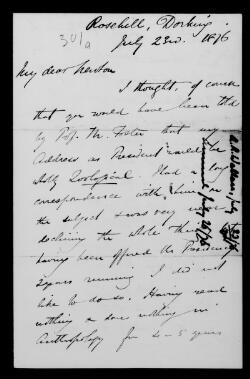 Rosehill, Dorking.
301/a
July 23rd. 1876
My dear Newton
I thought, of course
that you would have been told
by Prof. M. Foster that my
Address as President would be
solely Zoological. I had a long
correspondence with him on
the subject & was very near
declining the whole thing
having been offered the Presidency
2 years running I did not
like to do so. Having read
nothing & done nothing in
Anthropology for 4 – 5 years
A. R. Wallace, July 23/76
Answered July 26/76